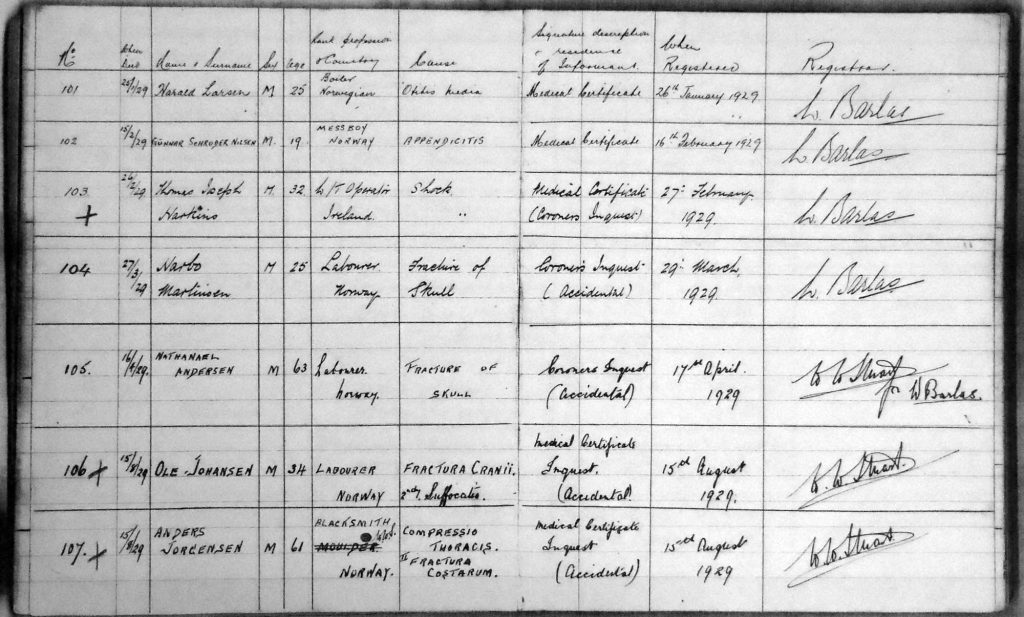 No. When Died Name & Surname Sex Age Rank Profession & Country Cause Signature description & residence of Informant. When Registered Registrar.
101 25/1/29 Harald Larsen M 25 Boiler Norwegian Otitis Media Medical Certificate 26th January 1929 W. Barlas
102 15/2/29 Gunnar Schroder Nilsen M. 19. MESSBOY NORWAY APPENDICITIS Medical Certificate 16th February 1929 W. Barlas
103 26/2/29 Thomas Joseph M. 32 W/T Operator Shock Medical Certificate 27th February
+ Harkins Ireland. " (Coroners Inquest) 1929. W. Barlas
104 27/3/29 Narbo M 25 Labourer Fracture of Coroners Inquest 29th March,
Martinsen Norway Skull (Accidental) 1929. W. Barlas
105. 16/4/29. NATHANAEL
ANDERSEN M 63 Labourer FRACTURE OF Coroners Inquest 17th April. W W Stuart
Norway. SKULL (Accidental) 1929 for W Barlas.
Medical Certificate
106 + 15/8/29 OLE JOHANSEN M 34 LABOURER FRACTURA CRANII. Inquest. 15th August W. W. Stuart.
NORWAY 2ndy Suffocatio. (Accidental) 1929.
ANDERS BLACKSMITH COMPRESSIO Medical Certificate
107. + 15/8/29 JORGENSEN M 61 MOULDER THORACIS. Inquest 15th August W W Stuart.
NORWAY. FRACTURA COSTARUM. (Accidental) 1929